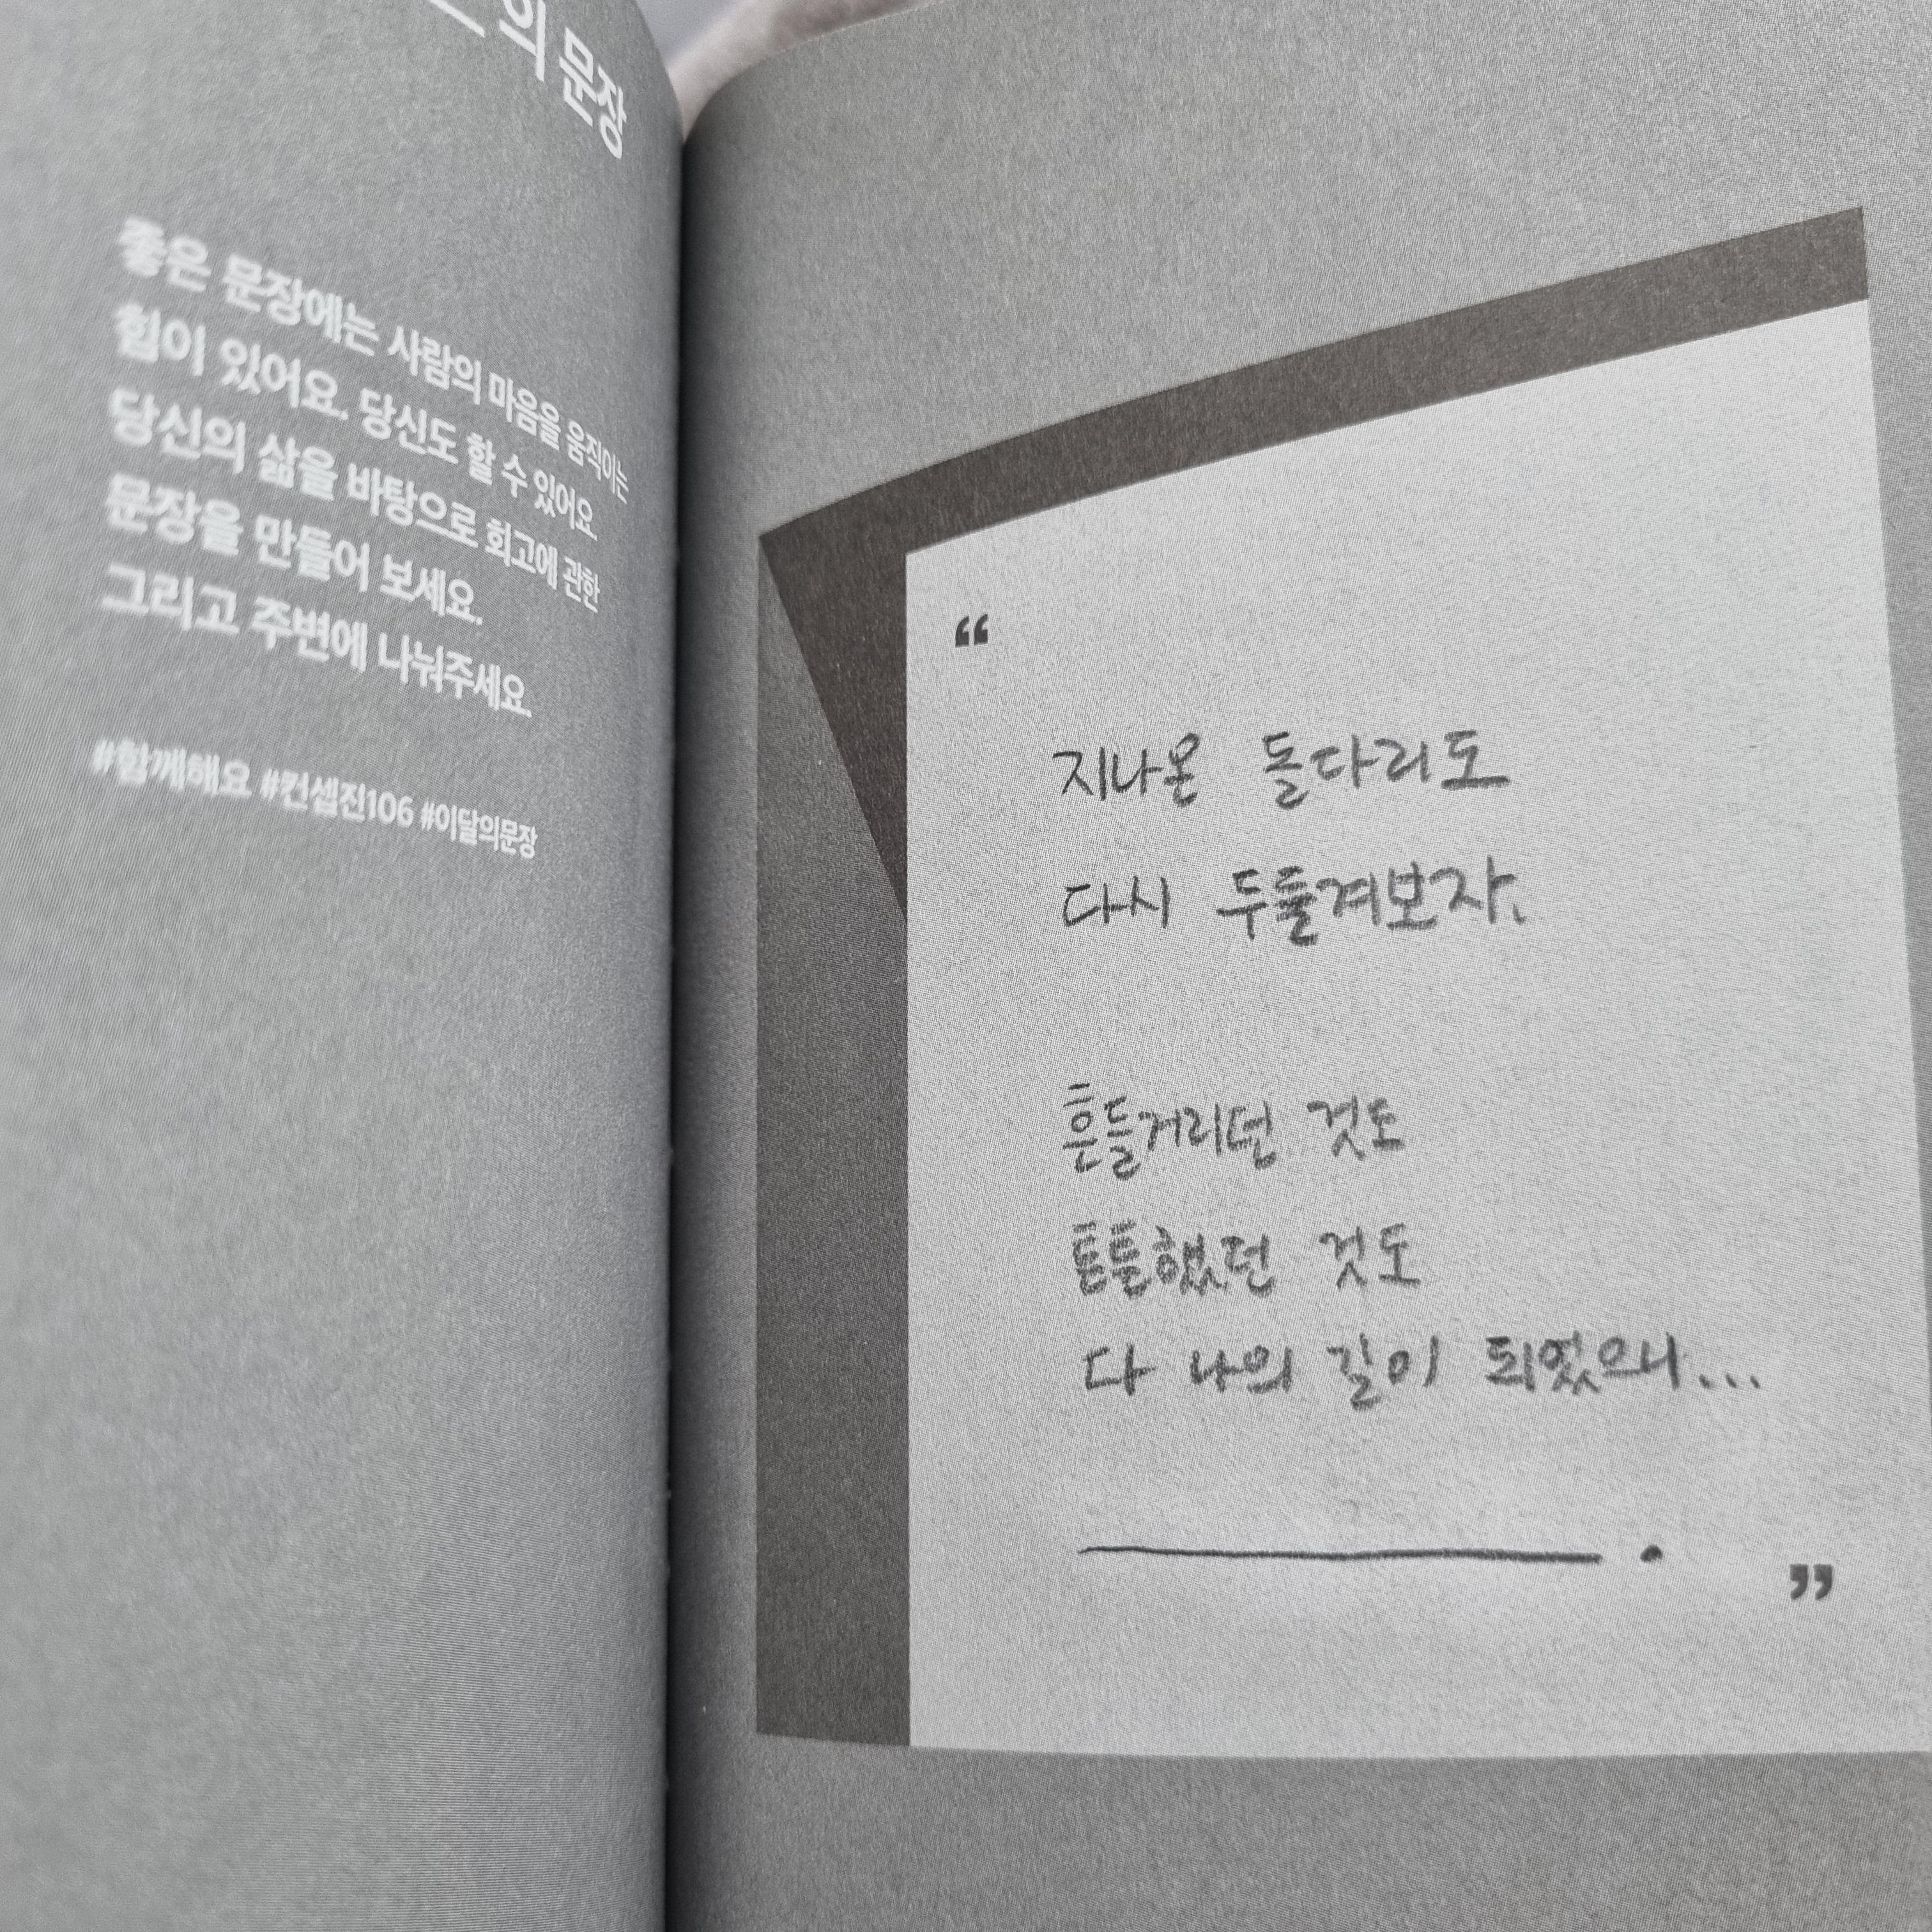 의 문장
좋은 문장에는 사람의 마음을 움직이는
힘이 있어요. 당신도 할 수 있어요.
당신의 삶을 바탕으로 회고에 관한
문장을 만들어 보세요.
그리고 주변에 나눠주세요.
#함께해요 #컨셉진106 #이달의문장
“
지나온 돌다리도
다시 두들겨보자.
흔들거리던 것도
튼튼했던 것도
다 나의 길이 되었으니...
”